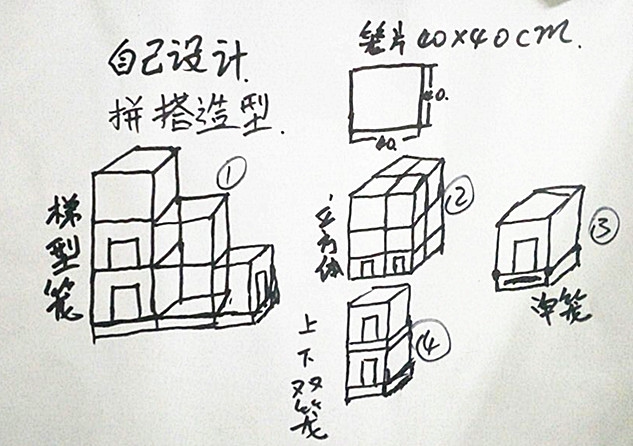 自己设计
拼搭造型.
笼片40×40cm.
40.
40.
①
梯型笼
②
立方体
③
单笼
④
上下双笼